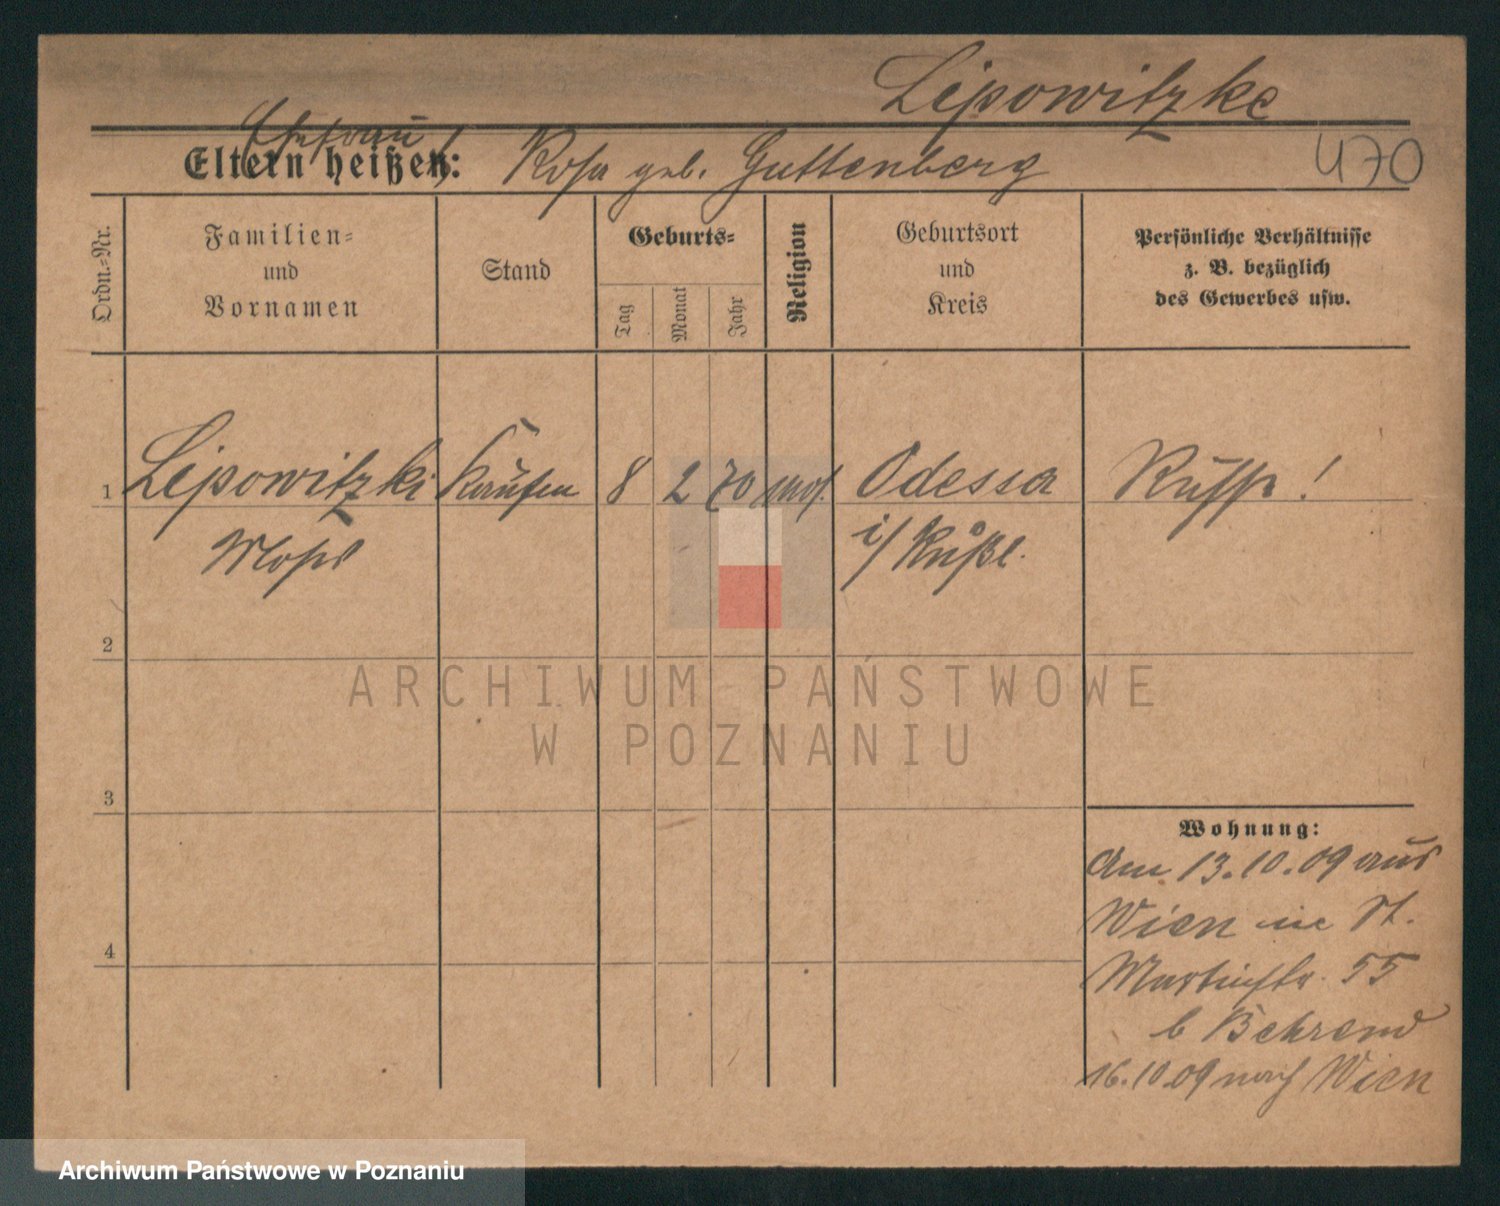 Lipowitzke
Ehefrau
Eltern heißen: Rosa geb. Guttenberg
470
Ordn.-Nr.
Familien-
und
Vornamen
Stand
Geburts-
Tag
Monat
Jahr
Religion
Geburtsort
und
Kreis
Persönliche Verhältnisse
z. B. bezüglich
des Gewerbes usw.
1 Lipowitzki Kaufm 8 2 70 mos. Odessa Russe!
Moses i/ Rußl.
2
3
4
Wohnung:
Am 13.10.09 aus
Wien in St.
Martinstr. 55
b Behrend
16.10.09 nach Wien
ARCHIWUM PAŃSTWOWE
W POZNANIU
Archiwum Państwowe w Poznaniu